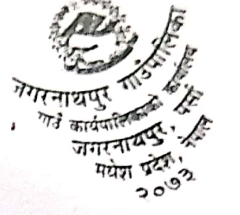 जगरनाथपुर गाउँपालिका
गाउँ कार्यपालिकाको कार्यालय
जगरनाथपुर, पर्सा
मधेश प्रदेश, नेपाल
२०७३